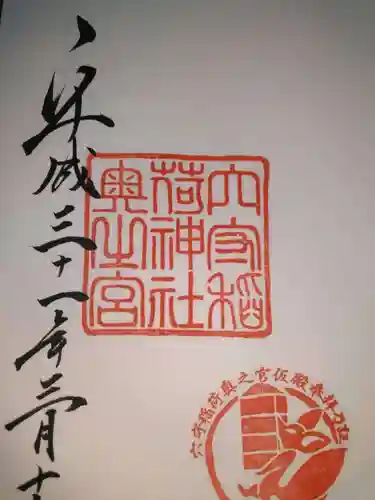 平成三十一年三月十
穴守稲
荷神社
奥之宮
穴守稲荷奥之宮仮殿参拝